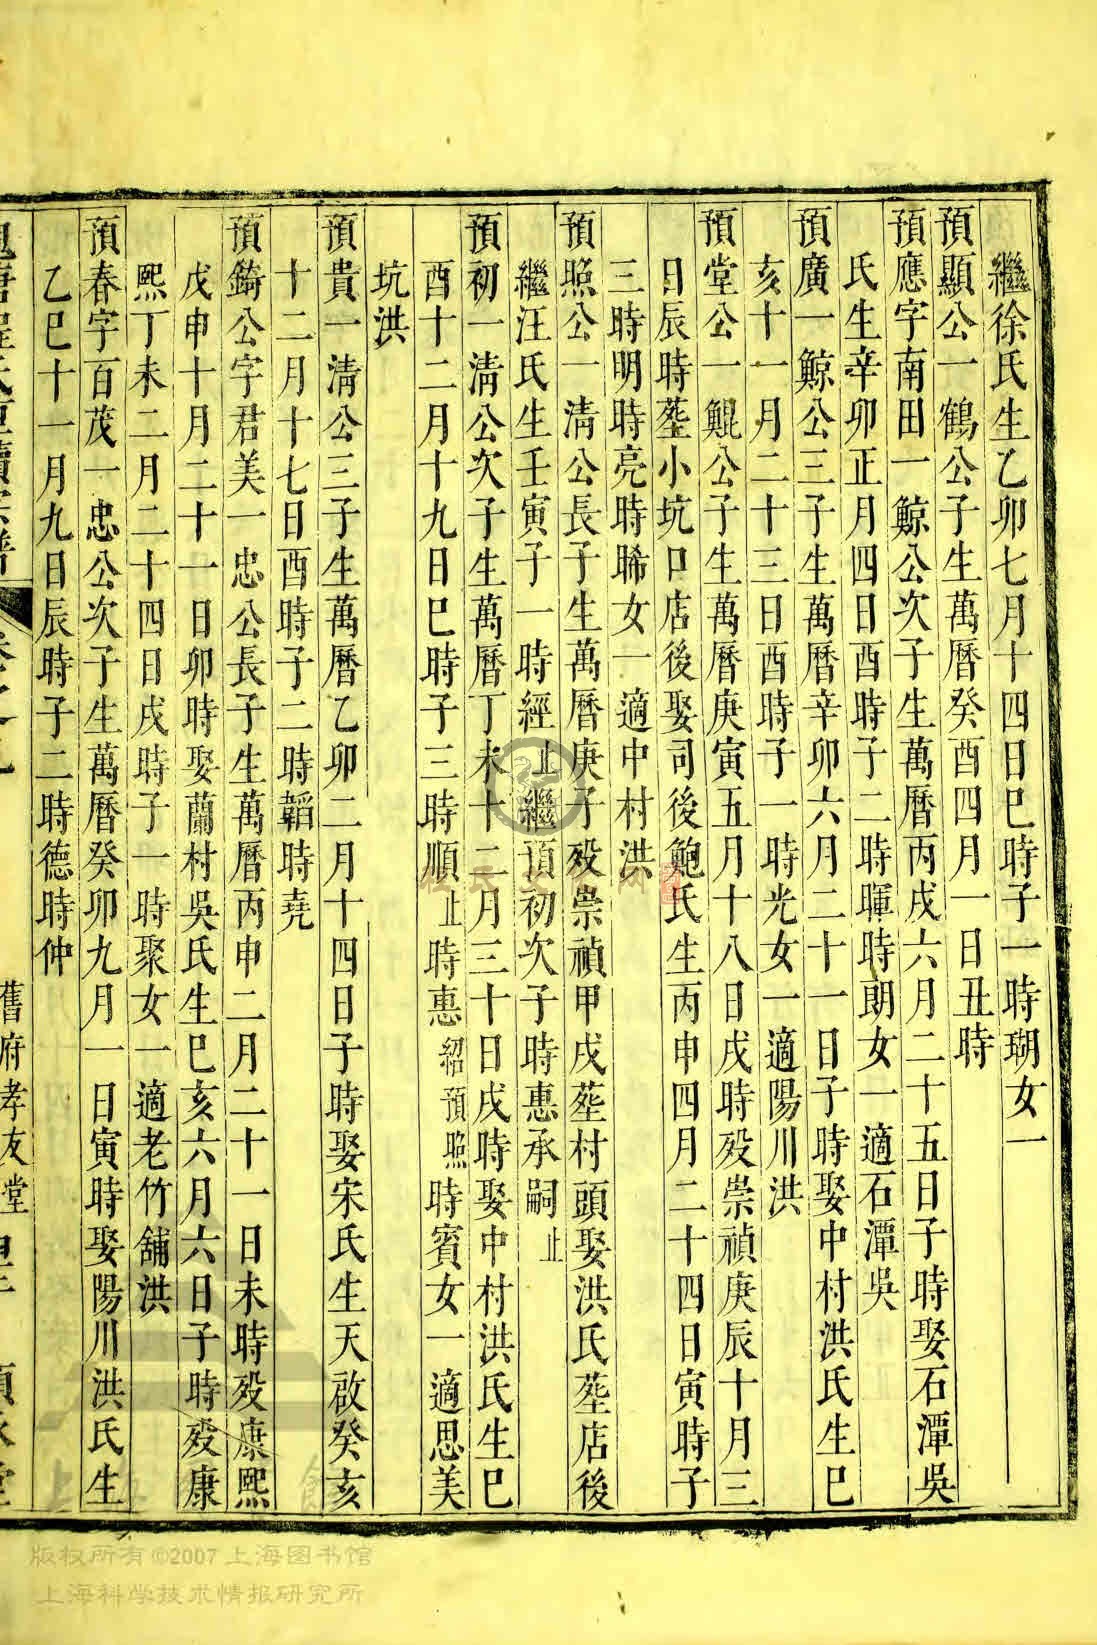 繼徐氏生乙卯七月十四日巳時子一時瑚女一
預顯公一鶴公子生萬曆癸酉四月一日丑時
預應字南田一鯨公次子生萬曆丙戌六月二十五日子時娶石潭吳
氏生辛卯正月四日酉時子二時暉時朗女一適石潭吳
預廣一鯨公三子生萬曆辛卯六月二十一日子時娶中村洪氏生巳
亥十一月二十三日酉時子一時光女一適陽川洪
預堂公一鯤公子生萬曆庚寅五月十八日戌時殁崇禎庚辰十月三
日辰時塟小坑口店後娶司後鮑氏生丙申四月二十四日寅時子
三時明時亮時晞女一適中村洪
預照公一淸公長子生萬曆庚子殁崇禎甲戌塟村頭娶洪氏塟店後
繼汪氏生壬寅子一時經止繼預初次子時惠承嗣止
預初一淸公次子生萬曆丁未十二月三十日戌時娶中村洪氏生巳
酉十二月十九日巳時子三時順止時惠紹預照時賓女一適思美
坑洪
預貴一淸公三子生萬曆乙卯二月十四日子時娶宋氏生天啟癸亥
十二月十七日酉時子二時韜時堯
預錡公字君美一忠公長子生萬曆丙申二月二十一日未時殁康熙
戊申十月二十一日卯時娶蘭村吳氏生巳亥六月六日子時殁康
熙丁未二月二十四日戌時子一時聚女一適老竹舖洪
預春字百茂一忠公次子生萬曆癸卯九月一日寅時娶陽川洪氏生
乙巳十一月九日辰時子二時德時仲
舊府孝友堂
版权所有©2007上海图书馆
上海科学技术情报研究所